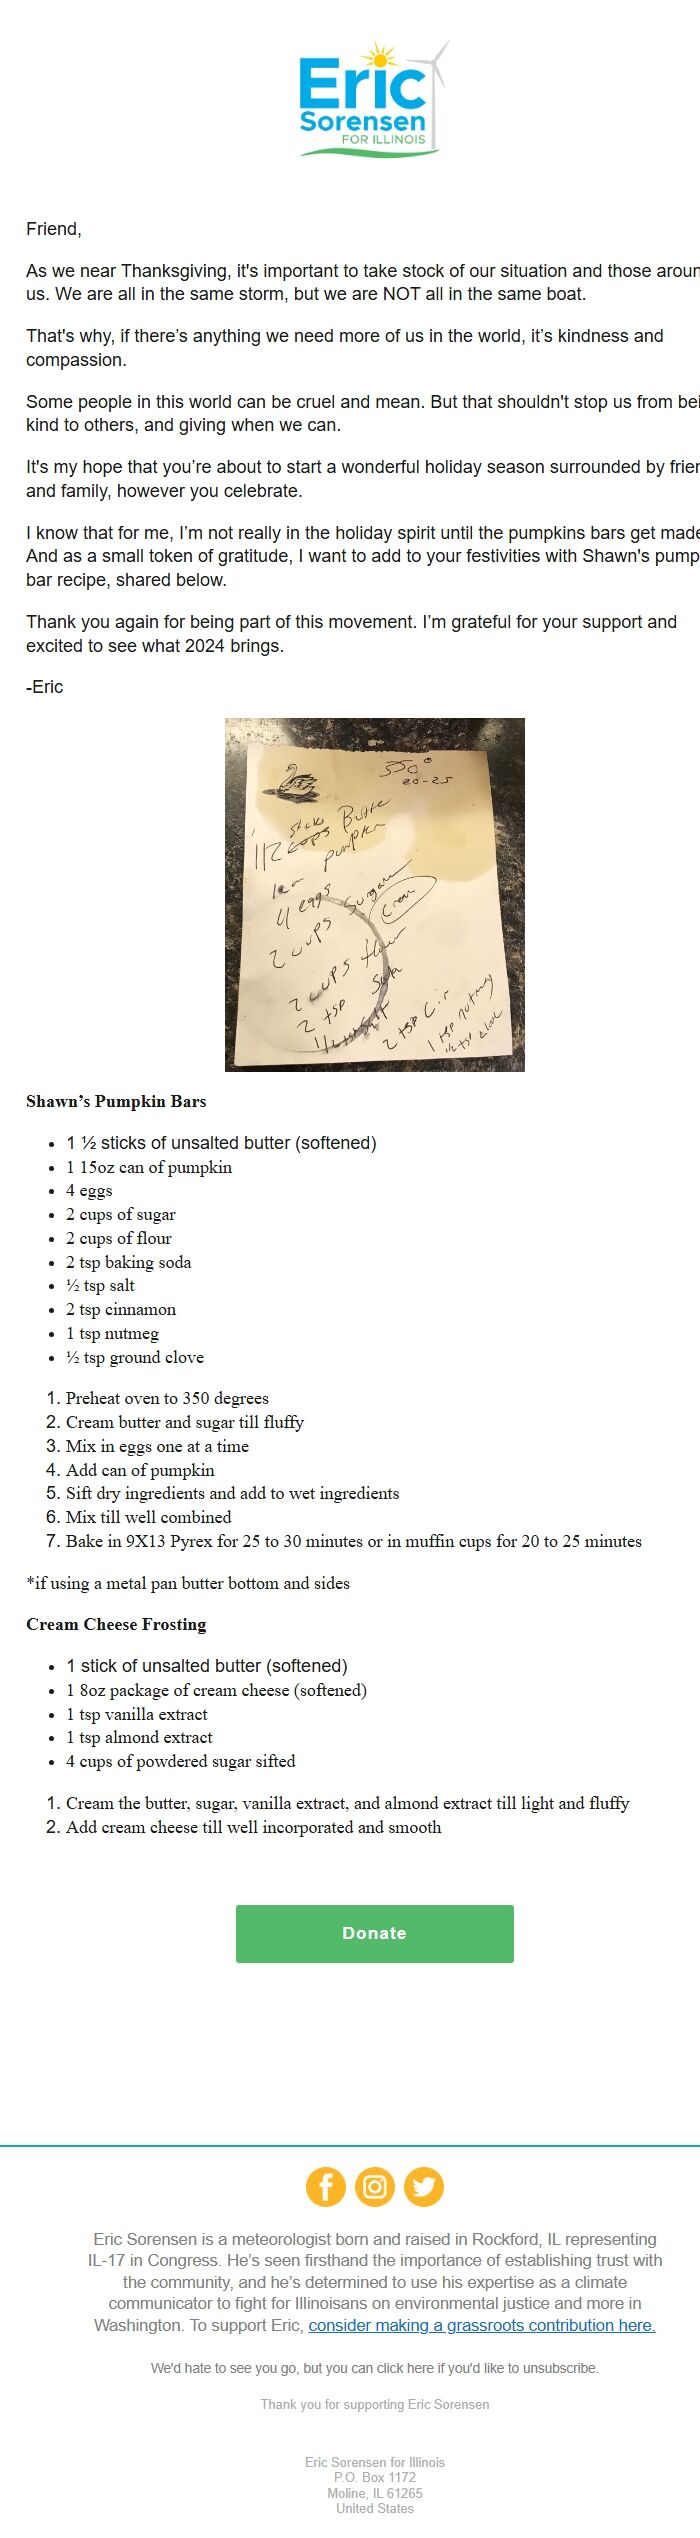 Eric
Sorensen
FOR ILLINOIS
Friend,
As we near Thanksgiving, it's important to take stock of our situation and those aroun
us. We are all in the same storm, but we are NOT all in the same boat.
That's why, if there’s anything we need more of us in the world, it’s kindness and
compassion.
Some people in this world can be cruel and mean. But that shouldn't stop us from bei
kind to others, and giving when we can.
It's my hope that you’re about to start a wonderful holiday season surrounded by frien
and family, however you celebrate.
I know that for me, I’m not really in the holiday spirit until the pumpkins bars get made
And as a small token of gratitude, I want to add to your festivities with Shawn's pump
bar recipe, shared below.
Thank you again for being part of this movement. I’m grateful for your support and
excited to see what 2024 brings.
-Eric
350°
20-25
sticks
1 1/2 cups Butter
1 can pumpkin
4 eggs
2 cups Sugar
Cream
2 cups flour
2 tsp Soda
1/2 tsp Salt
2 tsp Cin
1 tsp nutmeg
1/2 tsp clove
Shawn’s Pumpkin Bars
• 1 ½ sticks of unsalted butter (softened)
• 1 15oz can of pumpkin
• 4 eggs
• 2 cups of sugar
• 2 cups of flour
• 2 tsp baking soda
• ½ tsp salt
• 2 tsp cinnamon
• 1 tsp nutmeg
• ½ tsp ground clove
1. Preheat oven to 350 degrees
2. Cream butter and sugar till fluffy
3. Mix in eggs one at a time
4. Add can of pumpkin
5. Sift dry ingredients and add to wet ingredients
6. Mix till well combined
7. Bake in 9X13 Pyrex for 25 to 30 minutes or in muffin cups for 20 to 25 minutes
*if using a metal pan butter bottom and sides
Cream Cheese Frosting
• 1 stick of unsalted butter (softened)
• 1 8oz package of cream cheese (softened)
• 1 tsp vanilla extract
• 1 tsp almond extract
• 4 cups of powdered sugar sifted
1. Cream the butter, sugar, vanilla extract, and almond extract till light and fluffy
2. Add cream cheese till well incorporated and smooth
Donate
Eric Sorensen is a meteorologist born and raised in Rockford, IL representing
IL-17 in Congress. He’s seen firsthand the importance of establishing trust with
the community, and he’s determined to use his expertise as a climate
communicator to fight for Illinoisans on environmental justice and more in
Washington. To support Eric, consider making a grassroots contribution here.
We'd hate to see you go, but you can click here if you'd like to unsubscribe.
Thank you for supporting Eric Sorensen
Eric Sorensen for Illinois
P.O. Box 1172
Moline, IL 61265
United States